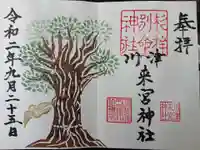 奉拝
杉桙別命神社
川津来宮神社
令和二年九月二十五日